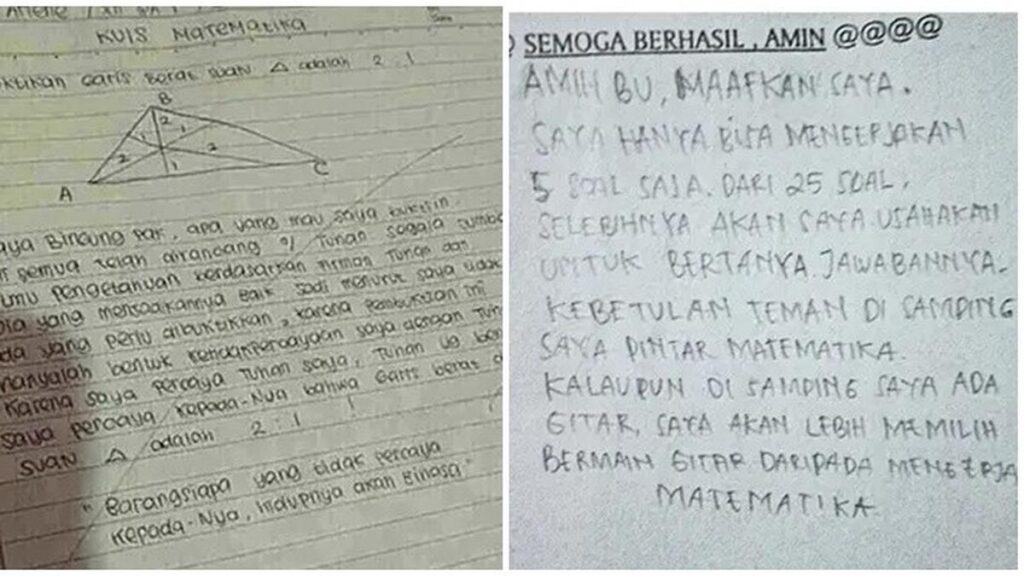 KUIS MATEMATIKA
Garis Berat suatu △ adalah 2 : 1
B
2
1
1
2
2
1
A
C
Bingung pak, apa yang mau saya buktiin.
semua telah dirancang o/ Tuhan segala
Pengetahuan berdasarkan Firman Tuhan dan
yang mengatakannya Baik Jadi menurut saya tidak
yang perlu dibuktikan, karena pembuktian ini
bentuk ketidakpercayaan saya dengan
Karena saya percaya Tuhan saya, Tuhan yg
saya percaya kepada-Nya bahwa Garis berat
suatu △ adalah 2 : 1
"Barangsiapa yang tidak percaya
kepada-Nya, hidupnya akan Binasa"
SEMOGA BERHASIL , AMIN @@@@
AMIN BU, MAAFKAN SAYA.
SAYA HANYA BISA MENGERJAKAN
5 SOAL SAJA. DARI 25 SOAL,
SELEBIHNYA AKAN SAYA USAHAKAN
UNTUK BERTANYA JAWABANNYA.
KEBETULAN TEMAN DI SAMPING
SAYA PINTAR MATEMATIKA.
KALAUPUN DI SAMPING SAYA ADA
GITAR, SAYA AKAN LEBIH MEMILIH
BERMAIN GITAR DARIPADA MENGERJA
MATEMATIKA